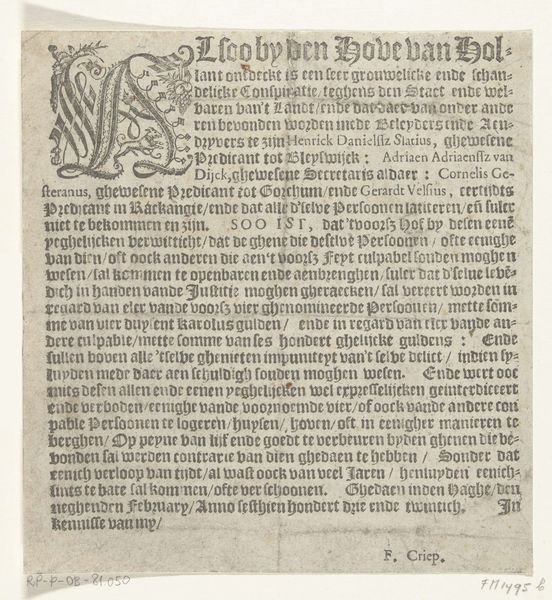 ALsoo by den Hove van Hol-
lant ontdeckt is een seer grouwelicke ende schan-
delicke Conspiratie, teghens den Staet ende wel-
varen van't Lande/ ende dat daer van onder ande
ren bevonden worden mede Beleyders ende Aen-
dryvers te zijn Henrick Danielsz Slatius, ghewesene
Predicant tot Bleyswijck: Adriaen Adriaensz van
Dijck, ghewesene Secretaris aldaer: Cornelis Ge-
steranus, ghewesene Predicant tot Gorchum/ ende Gerardt Velsius, eertijdts
Predicant in Rackangie/ ende dat alle d'selve Persoonen latiteren/ eñ sulcx
niet te bekommen en zijn. SOO IST, dat 'tvoorsz Hof by desen eenē
yeghelijcken verwitticht/ dat de ghene die deselve Persoonen/ ofte eenighe
van dien/ oft oock anderen die aen't voorsz Feyt culpabel souden moghen
wesen/ sal kommen te openbaren ende aenbrenghen/ sulcx dat d'selve levē-
dich in handen vande Justitie moghen gheraecken/ sal vereert worden in
regard van elcx vande voorsz vier ghenomineerde Persoonen/ mette som-
me van vier duysent Karolus gulden/ ende in regard van elcx vande an-
dere culpable/ mette somme van ses hondert ghelijcke guldens: Ende
sullen boven alle 'tselve ghenieten impuniteyt van't selve delict/ indien sy-
luyden mede daer aen schuldigh souden moghen wesen. Ende wert ooc
mits desen allen ende eenen yeghelijcken wel expresselijcken geinterdiceert
ende verboden/ eenighe vande voornoemde vier/ of oock vande andere con
pable Persoonen te logeren/ huysen/ hoven/ oft in eenigher manieren te
berghen/ Op peyne van lijf ende goedt te verbeuren byden ghenen die be-
vonden sal werden contrarie van dien ghedaen te hebben/ Sonder dat
eenich verloop van tijdt/ al wast oock van veel Jaren/ henluyden eenich-
sints te bate sal kommen/ ofte verschoonen. Ghedaen inden Haghe/ den
neghenden February/ Anno sesthien hondert drie ende twintich. In
kennisse van my/
F. Criep.
RP-P-OB-81.050
FM1495 b